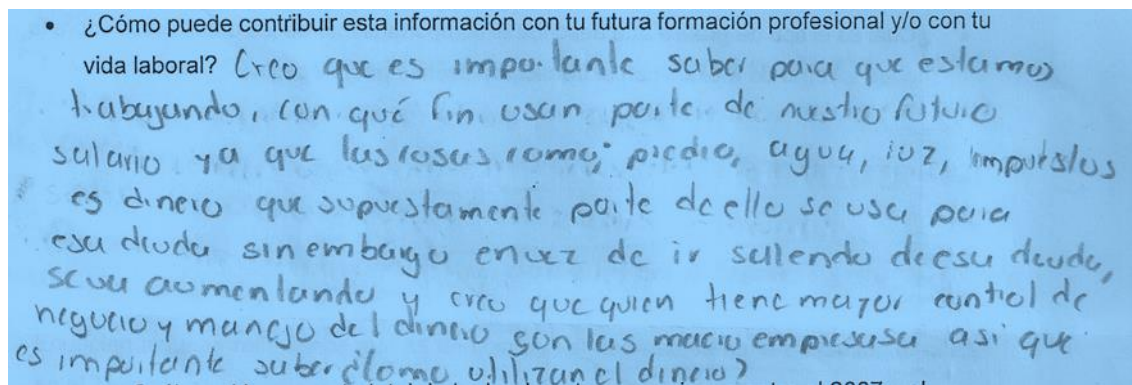 • ¿Cómo puede contribuir esta información con tu futura formación profesional y/o con tu
vida laboral? Creo que es importante saber para que estamos
trabajando, con qué fin usan parte de nuestro futuro
salario ya que las cosas como; predio, agua, luz, impuestos
es dinero que supuestamente parte de ello se usa para
esa deuda sin embargo en vez de ir saliendo de esa deuda,
se va aumentando y creo que quien tiene mayor control de
negocio y manejo del dinero son las macro empresasa asi que
es importante saber ¿Como utilizan el dinero?